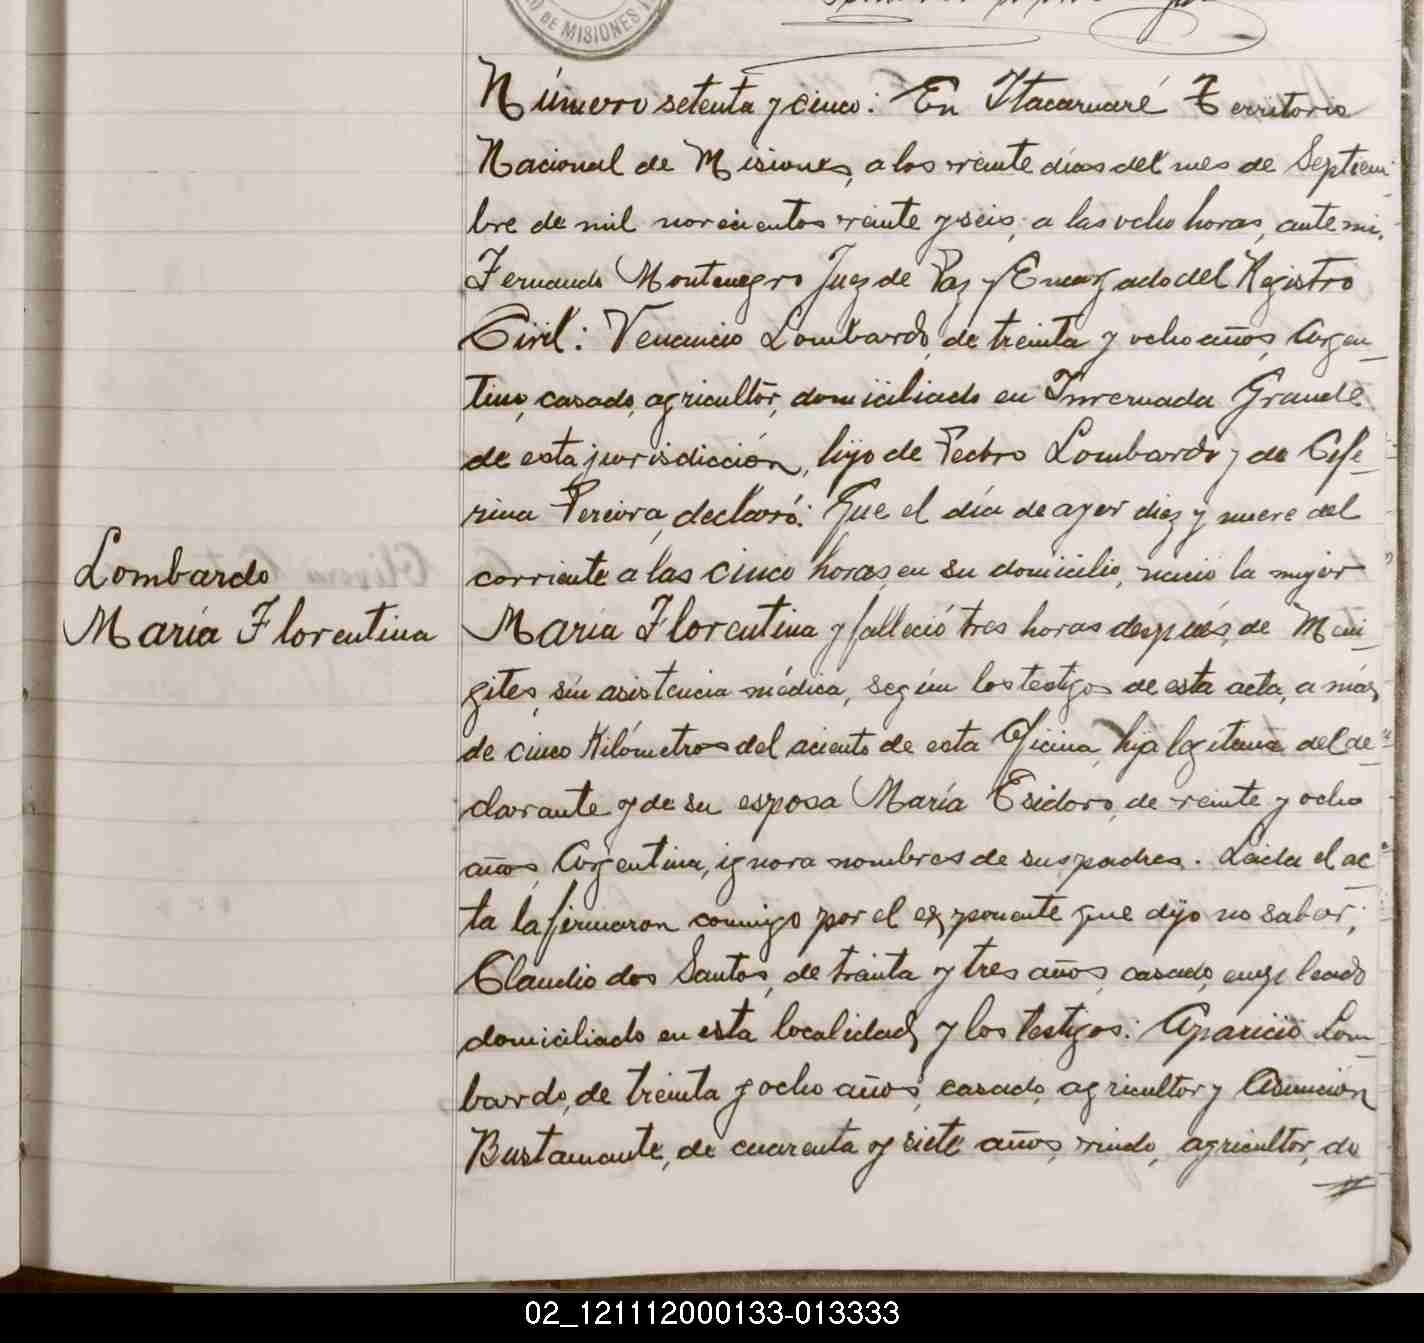 DE MISIONES
Número setenta y cinco: En Itacaruaré Territorio
Nacional de Misiones, a los veinte días del mes de Septiem-
bre de mil novecientos veinte y seis, a las ocho horas, ante mi,
Fernando Montenegro Juez de Paz y Encargado del Registro
Civil: Venancio Lombardo, de treinta y ocho años, Argen-
tino, casado, agricultor, domiciliado en Invernada Grande
de esta jurisdicción, hijo de Pedro Lombardo y de Cefe-
rina Pereira, declaró: Que el día de ayer diez y nueve del
corriente a las cinco horas, en su domicilio, nació la mujer
Lombardo
María Florentina
María Florentina y falleció tres horas después, de Meni-
gites, sin asistencia médica, según los testigos de esta acta, a más
de cinco Kilómetros del aciento de esta Oficina, hija legitima del de-
clarante y de su esposa María Esidoro, de veinte y ocho
años, Argentina, ignora nombres de sus padres. Leida el ac-
ta la firmaron conmigo por el exponente que dijo no saber;
Claudio dos Santos, de treinta y tres años, casado, empleado
domiciliado en esta localidad, y los testigos: Aparicio Lom-
bardo, de treinta y ocho años, casado, agricultor y Asunción
Bustamante, de cuarenta y siete años, viudo, agricultor, do
02_121112000133-013333